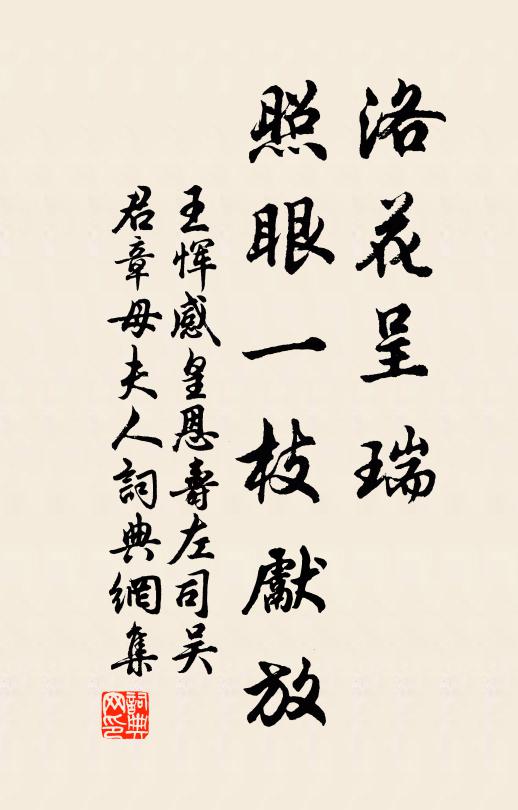 洛花呈瑞
照眼一枝獻放
王惲感皇恩壽左司吴
君章母夫人詞典網集
詞典
网印